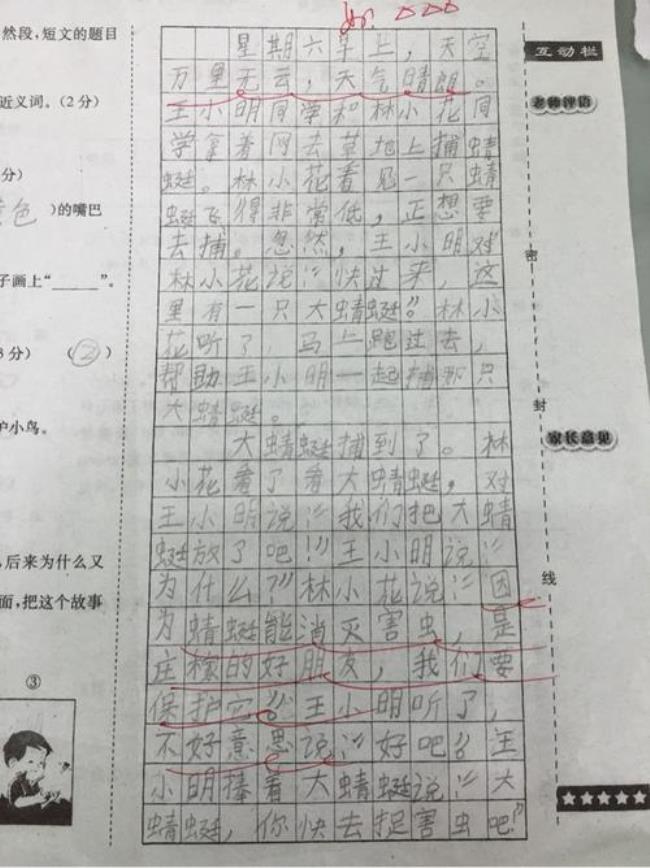 然段，短文的题目
近义词。（2分）
分）
色 ）的嘴巴
子画上“______”。
分） （②）
护小鸟。
，后来为什么又
面，把这个故事
③
好。
星期六早上，天空
万里无云，天气晴朗。
王小明同学和林小花同
学拿着网去草地上捕蜻
蜓。林小花看见一只蜻
蜓飞得非常低，正想要
去捕。忽然，王小明对
林小花说：“快过来，这
里有一只大蜻蜓。”林小
花听了，马上跑过去，
帮助王小明一起捕那只
大蜻蜓。
大蜻蜓捕到了。林
小花看了看大蜻蜓，对
王小明说：“我们把大蜻
蜓放了吧！”王小明说：“
为什么？”林小花说：“因
为蜻蜓能消灭害虫，是
庄稼的好朋友，我们要
保护它。”王小明听了，
不好意思说：“好吧。”王
小明捧着大蜻蜓说：“大
蜻蜓，你快去捉害虫吧！”
互动栏
老师评语
密
封
家长意见
线
★★★★★